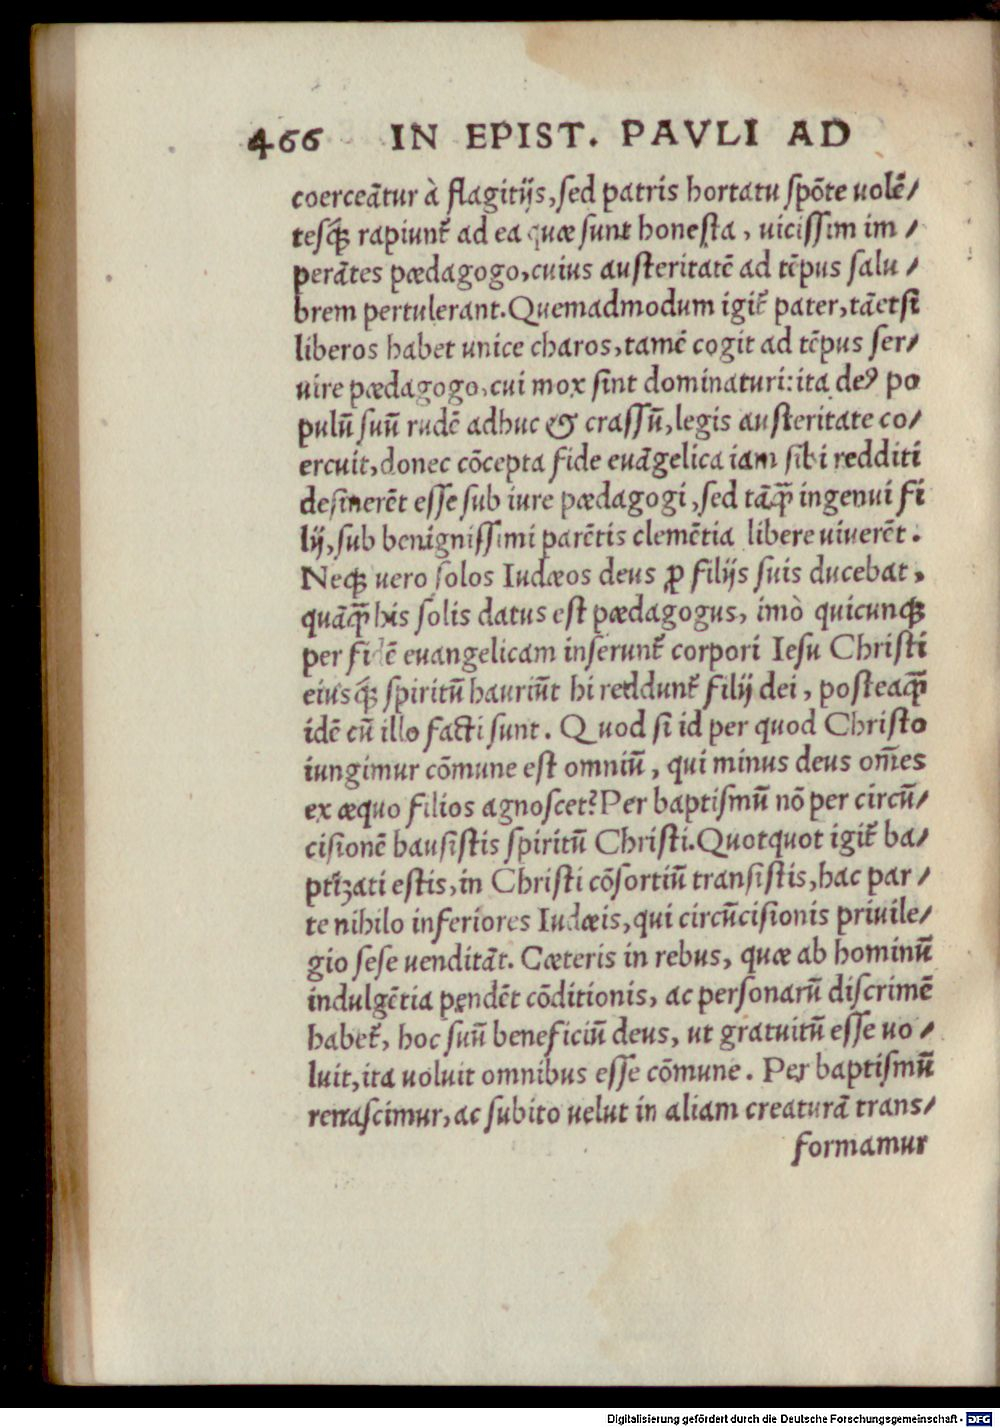 466 IN EPIST. PAVLI AD
coerceātur à flagitijs, sed patris hortatu spōte uolē/
tesq́ꝫ rapiunt᷑ ad ea quæ sunt honesta, uicissim im/
perātes pædagogo, cuius austeritatē ad tēpus salu/
brem pertulerant. Quemadmodum igit᷑ pater, tāetsi
liberos habet unice charos, tamē cogit ad tēpus ser/
uire pædagogo, cui mox sint dominaturi: ita deꝰ po
pulū suū rudē adhuc & crassū, legis austeritate co/
ercuit, donec cōcepta fide euāgelica iam sibi redditi
desinerēt esse sub iure pædagogi, sed tāꝗ̄ ingenui fi
lij, sub benignissimi parētis clemētia libere uiuerēt.
Neqꝫ uero solos Iudæos deus ꝓ filijs suis ducebat,
quāꝗ̄ his solis datus est pædagogus, imò quicunqꝫ
per fidē euangelicam inserunt᷑ corpori Iesu Christi
eiusq́ꝫ spiritū hauriūt hi reddunt᷑ filij dei, posteaꝗ̄
idē cū illo facti sunt. Quod si id per quod Christo
iungimur cōmune est omniū, qui minus deus om̄es
ex æquo filios agnoscet? Per baptismū nō per circū/
cisionē hausistis spiritū Christi. Quotquot igit᷑ ba/
ptizati estis, in Christi cōsortiū transistis, hac par/
te nihilo inferiores Iudæis, qui circūcisionis priuile/
gio sese uenditāt. Cæteris in rebus, quæ ab hominū
indulgētia pendēt cōditionis, ac personarū discrimē
habet᷑, hoc suū beneficiū deus, ut gratuitū esse uo/
luit, ita uoluit omnibus esse cōmune. Per baptismū
renascimur, ac subito uelut in aliam creaturā trans/
formamur
Digitalisierung gefördert durch die Deutsche Forschungsgemeinschaft - DFG